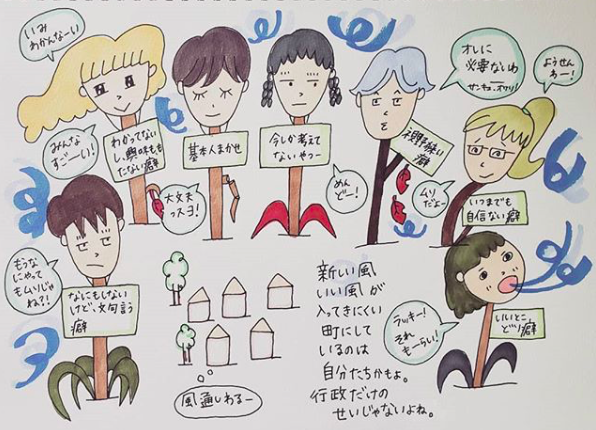 いみ
わかんなーい
みんな
すごーい!
わかってない
し、興味もも
たない癖
基本人まかせ
大丈夫
っスヨ!
今しか考えて
ないやつー
めん
どー!
オレに
必要ないわ
サンキュ、オワリ!
視野狭い
癖
ムリ
だよー
ようせん
わー!
いつまでも
自信ない癖
もうな
にやって
もムリじゃ
ね?!
なにもしない
けど、文句言う
癖
風通しわるー
新しい風、
いい風が
入ってきにくい
町にして
いるのは
自分たちかもよ。
行政だけの
せいじゃないよね。
ラッキー!
それ
もーらい!
いいとこ
どり癖